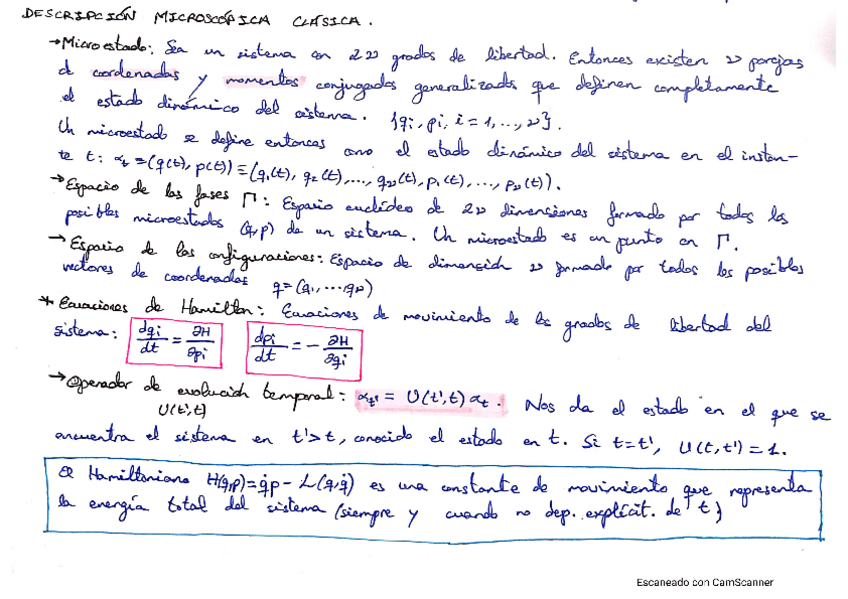 DESCRIPCIÓN MICROSCÓPICA CLÁSICA.
→ Microestado: Sea un sistema con 2ν grados de libertad. Entonces existen ν parejas
de coordenadas y momentos conjugados generalizados que definen completamente
el estado dinámico del sistema. {qi, pi, i = 1, ..., ν}.
Un microestado se define entonces como el estado dinámico del sistema en el instan-
te t: αt = (q(t), p(t)) ≡ (q1(t), q2(t), ..., qν(t), p1(t), ..., pν(t)).
→ Espacio de las fases Γ: Espacio euclídeo de 2ν dimensiones formado por todos los
posibles microestados (q,p) de un sistema. Un microestado es un punto en Γ.
→ Espacio de las configuraciones: Espacio de dimensión ν formado por todos los posibles
vectores de coordenadas q = (q1, ..., qν)
* Ecuaciones de Hamilton: Ecuaciones de movimiento de los grados de libertad del
sistema: dqi/dt = ∂H/∂pi dpi/dt = - ∂H/∂qi
→ Operador de evolución temporal: αt' = U(t',t) αt. Nos da el estado en el que se
U(t',t)
encuentra el sistema en t'>t, conocido el estado en t. Si t=t', U(t,t') = 1.
El Hamiltoniano H(q,p) = q̇p - L(q,q̇) es una constante de movimiento que representa
la energía total del sistema (siempre y cuando no dep. explícit. de t)
Escaneado con CamScanner